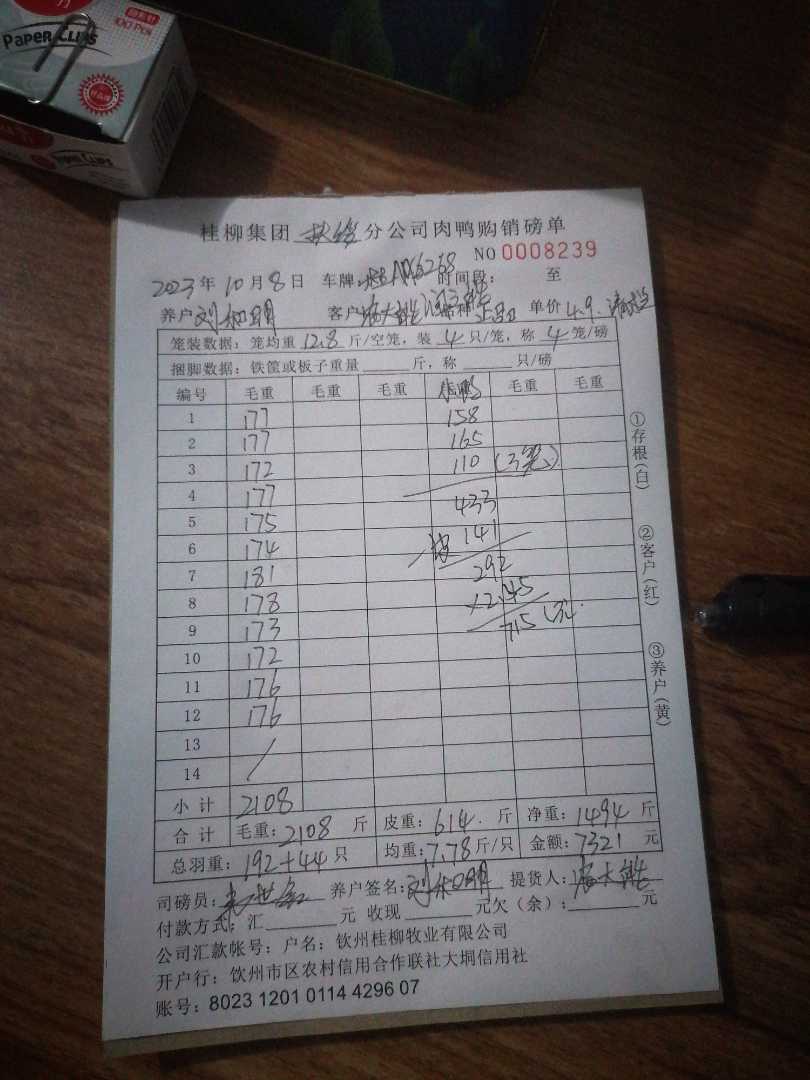 Paper CLIPS
100 Pcs
桂柳集团 扶绥 分公司肉鸭购销磅单
NO 0008239
2023 年 10 月 8 日 车牌: 时间段: 至
养户 客户 单价 4.9.
笼装数据: 笼均重 12.8 斤/空笼, 装 4 只/笼, 称 4 笼/磅
捆脚数据: 铁筐或板子重量 斤, 称 只/磅
编号 毛重 毛重 毛重 毛重 毛重
1 177 158
2 177 165
3 172 110 (3笼)
4 177 433
5 175 141
6 174 292
7 181 ×2.45
8 178 715 (元)
9 173
10 172
11 176
12 176
13 /
14
小计 2108
合计 毛重: 2108 斤 皮重: 614. 斤 净重: 1494 斤
总羽重: 192+44 只 均重: 7.78 斤/只 金额: 7321 元
司磅员: 养户签名: 提货人:
付款方式: 汇 元 收现 元欠(余): 元
公司汇款帐号: 户名: 钦州桂柳牧业有限公司
开户行: 钦州市区农村信用合作联社大垌信用社
账号: 8023 1201 0114 4296 07
①存根(白)
②客户(红)
③养户(黄)